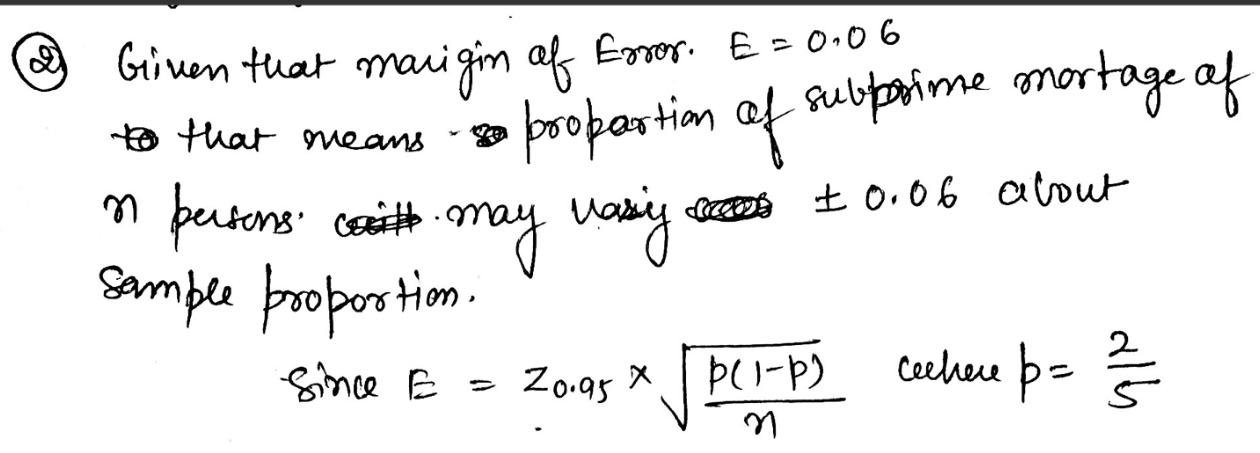 ② Given that margin of Error. E = 0.06
that means proportion of subprime mortage of
n persons. may vary ± 0.06 about
Sample proportion.
Since E = Z0.95 × √(p(1-p)/n) where p = 2/5